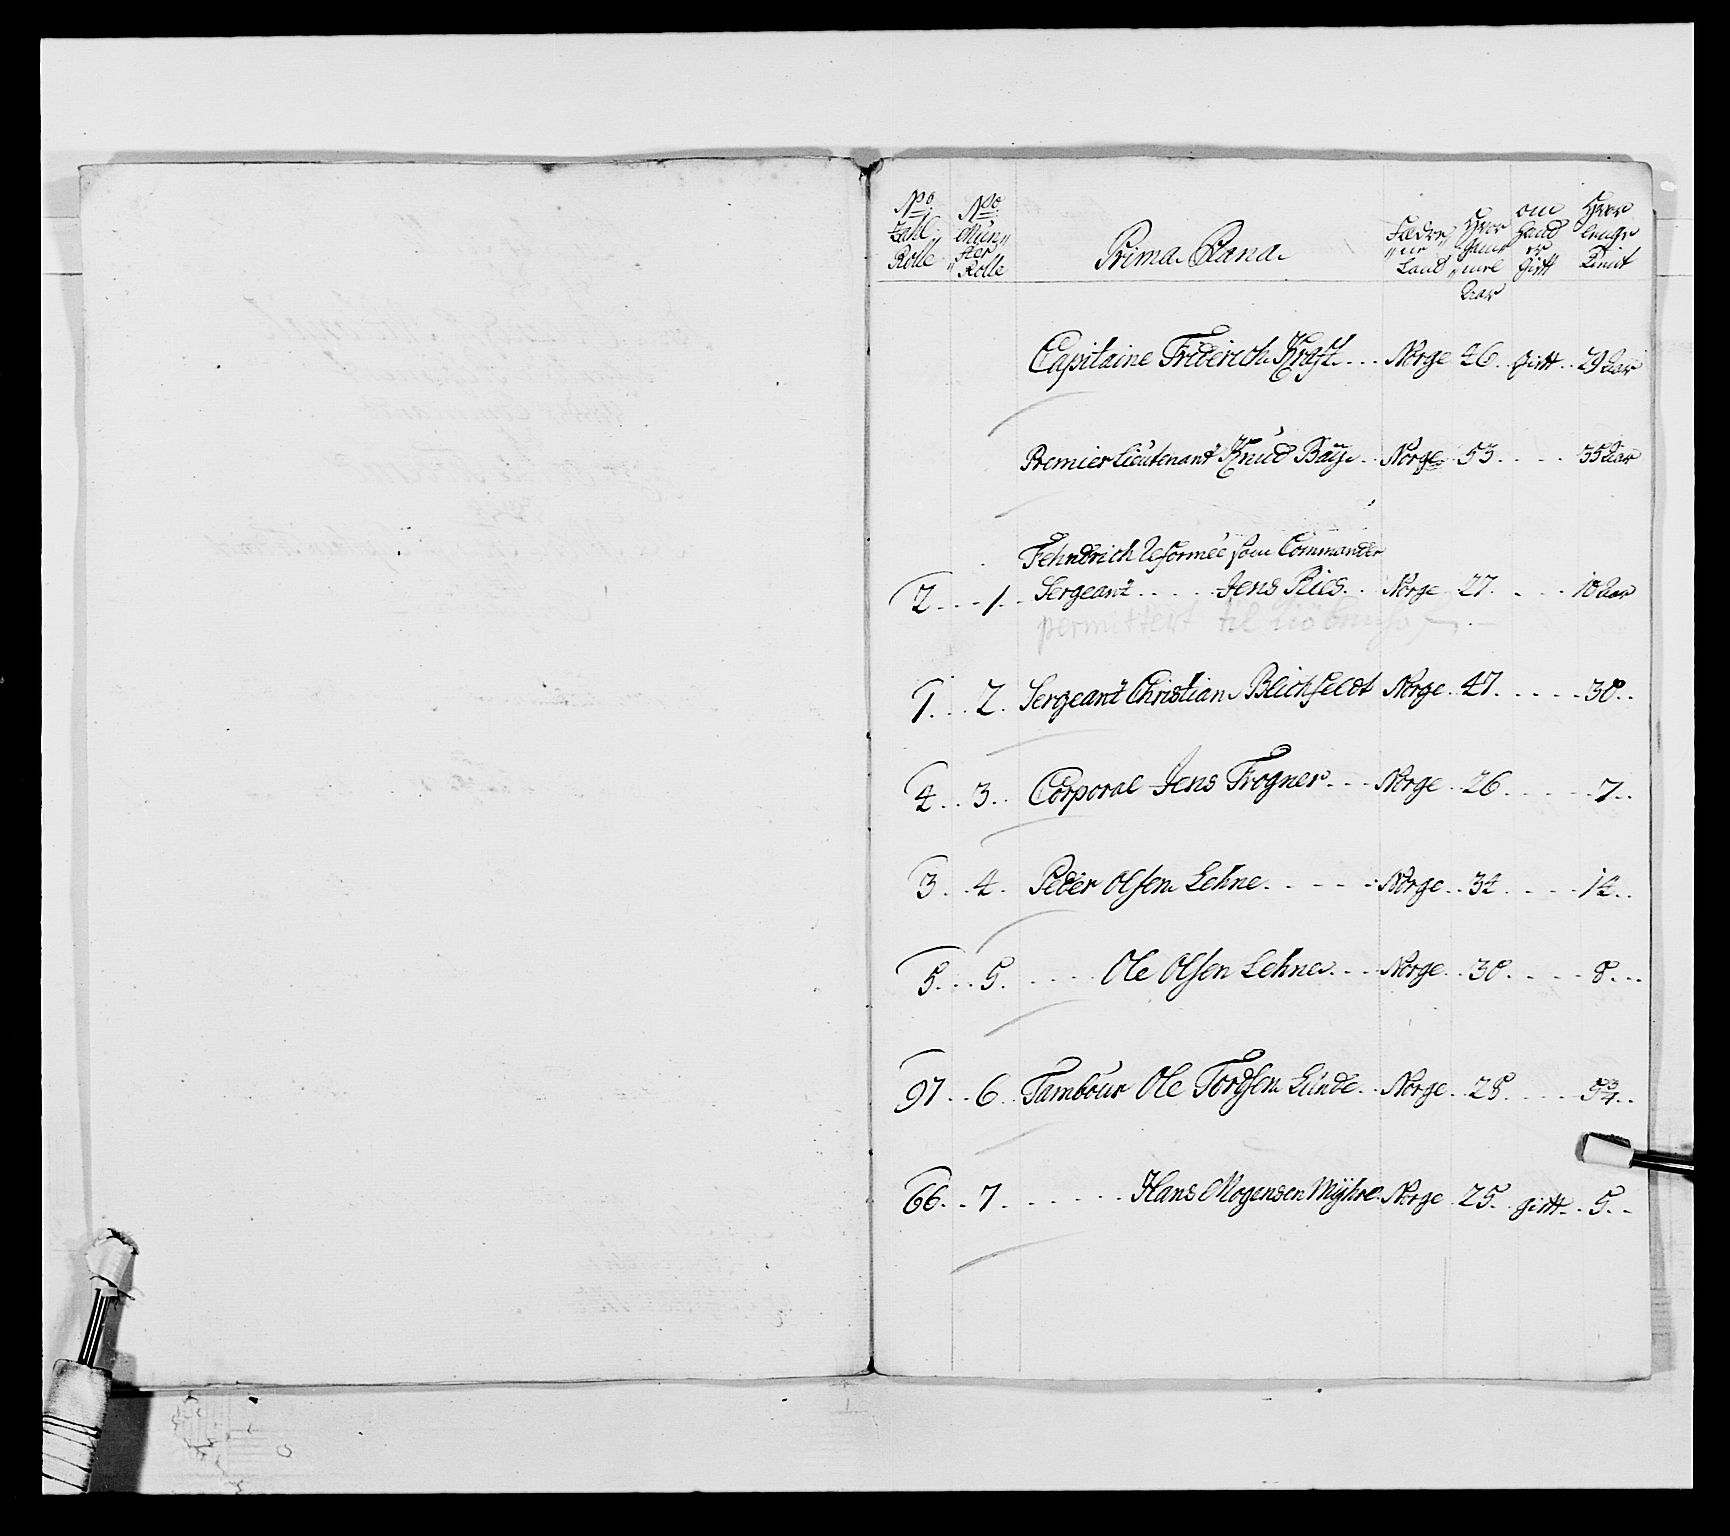 No: Zahl Rolle
No: Mün„ „ster Rolle
Prima Plana
Fædre„ „ne Land
Hvor gam„ „mel Aar
om Hand er Gift
Hvor lenge Tient
Capitaine Friderich Kraft... Norge 46. gift.. 29 Aar
Premier Lieutenant Knud Bay.. Norge 53.... 35 Aar
Fehndrich Reformée som Commander
2...1.. Sergeant..... Jens Ries.. Norge 27.... 10 Aar
permittert til
1...2. Sergeant Christian Blichfeldt Norge. 47..... 30..
4..3.. Corporal Jens Frogner... Norge. 26..... 7..
3..4. Peder Olsen Lehne..... Norge. 34.... 14..
5...5..... Ole Olsen Lehne.... Norge. 30.... 8...
97..6.. Tambour Ole Tordsen Lunde.. Norge. 28.... 5¾..
66..7...... Hans Mogensen Myhre. Norge 25. gift.. 5..